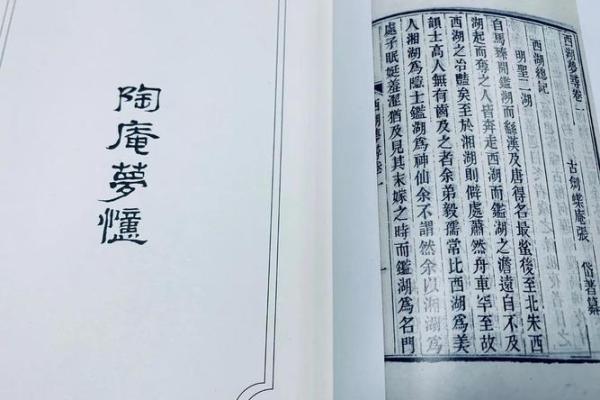 陶庵夢憶
西湖夢尋卷一
古劍蝶庵張 岱著纂
西湖總記
明聖二湖
自馬臻開鑑湖而繇漢及唐得名最蚤後至北宋西
湖起而奪之人皆奔走西湖而鑑湖之澹遠自不及
西湖之冶豔矣至於湘湖則僻處蕭然舟車罕至故
韻士高人無有齒及之者余弟毅孺常比西湖爲美
人湘湖爲隱士鑑湖爲神仙余不謂然余以湘湖爲
處子眠娗羞澀猶及見其未嫁之時而鑑湖爲名門
西湖夢尋卷一